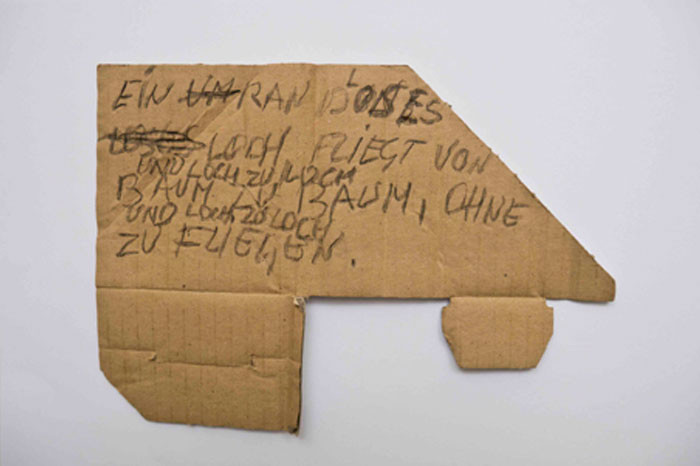 EIN RANDLOSES
LOCH FLIEGT VON
UND LOCH ZU LOCH
BAUM ZU BAUM, OHNE
UND LOCH ZU LOCH
ZU FLIEGEN.